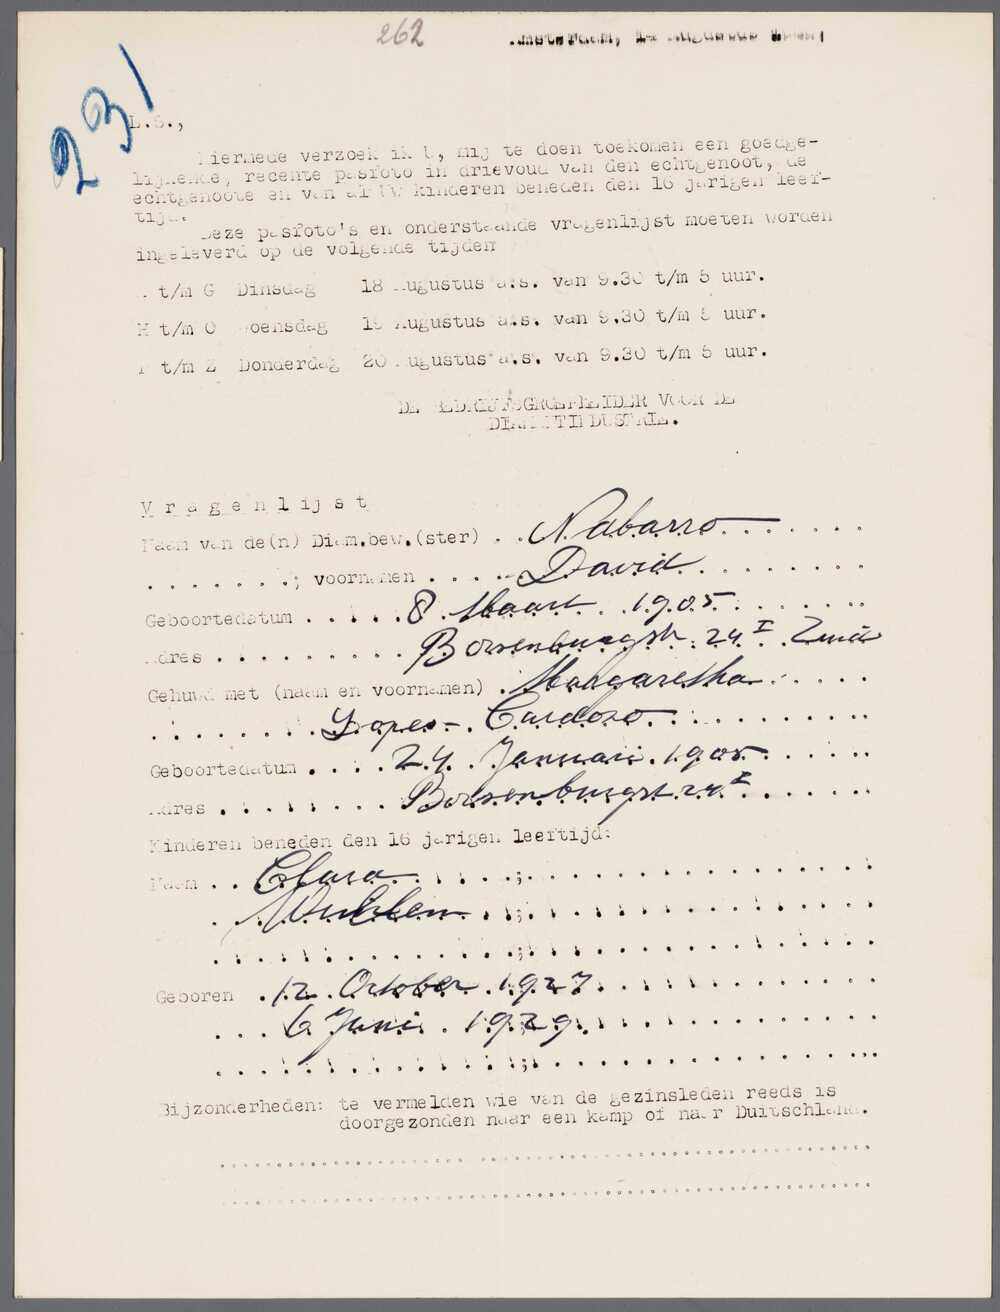 262
231
L.S.,
Hiermede verzoek ik U, mij te doen toekomen een goedge-
lijkende, recente pasfoto in drievoud van den echtgenoot, de
echtgenoote en van al Uw kinderen beneden den 16 jarigen leef-
tijd.
Deze pasfoto's en onderstaande vragenlijst moeten worden
ingeleverd op de volgende tijden
t/m G Dinsdag 18 Augustus a.s. van 9.30 t/m 5 uur.
H t/m O Woensdag 19 Augustus a.s. van 9.30 t/m 5 uur.
P t/m Z Donderdag 20 Augustus a.s. van 9.30 t/m 5 uur.
DE BEDRIJFSGROEPLEIDER VOOR DE
DIAMANTINDUSTRIE.
Vragenlijst
Naam van de(n) Diam.bew.(ster) . . Nabarro . . . . . .
. . . . . . .; voornamen . . . . . David . . . . . . . .
Geboortedatum . . . . . 8 Maart . 1905 . . . . . . .
Adres . . . . . . . . . Borsenburgstr. 24 I Zuid
Gehuwd met (naam en voornamen) . Margaretha . . . . .
. . . . . . . . Lopes - Cardozo . . . . . . . . . .
Geboortedatum . . . . 24 Januari 1905 . . . . . .
Adres . . . . . . . Borsenburgst. 24 I . . . . . . .
Kinderen beneden den 16 jarigen leeftijd:
Naam . . Clara . . . . . ; . . . . . . . . . . . . .
. . . . ; . . . . . . . . . . . . .
. . . . . . . . . . . . . . ; . . . . . . . . . . . . .
Geboren . 12 October 1927 . . . . . . . . . . . .
. . . 6 Juni . 1929. . . . . . . . . . . . .
. . . . . . . . . . . . . . ; . . . . . . . . . . . . .
Bijzonderheden: te vermelden wie van de gezinsleden reeds is
doorgezonden naar een kamp of naar Duitschland.